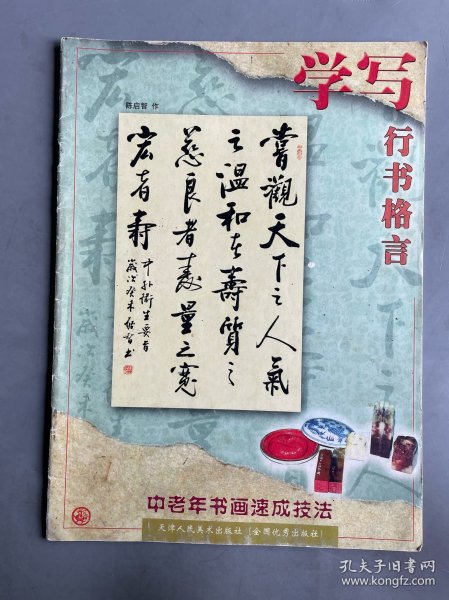 学写
行书格言
陈启智 作
嘗觀天下之人氣
之溫和者壽質之
慈良者壽量之寬
宏者壽
中外衛生要旨
歲次癸未啓智書
中老年书画速成技法
天津人民美术出版社（全国优秀出版社）
孔夫子旧书网
www.kongfz.com